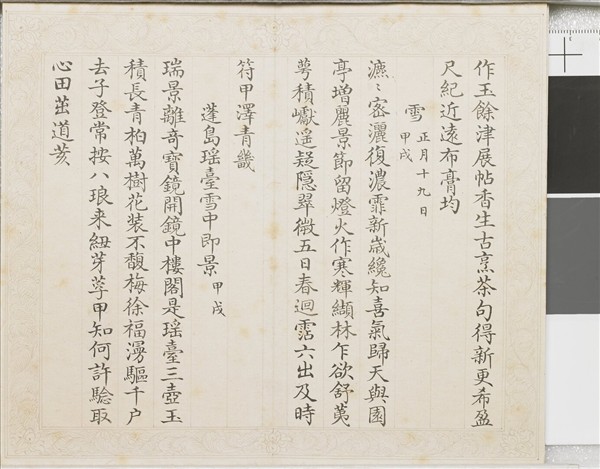 作玉餘津展帖香生古烹茶句得新更希盈
尺紀近遠布膏均
雪 正月十九日 甲戌
瀌瀌密灑復濃霏新歲纔知喜氣歸天與園
亭增麗景節留燈火作寒輝纈林乍欲舒荑
萼積巘遙疑隱翠微五日春迴霑六出及時
符甲澤青畿
蓬島瑤臺雪中即景 甲戌
瑞景離奇寶鏡開鏡中樓閣是瑤臺三壺玉
積長青柏萬樹花裝不馥梅徐福漫驅千户
去子登常按八琅来紐芽莩甲知何許驗取
心田茁道荄